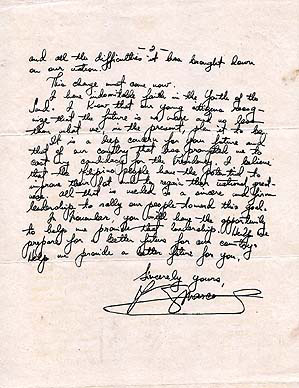 - 3 -
and all the difficulties it has brought down
on our nation.
This change must come now.
I have indomitable faith in the Youth of the
land. I know that our young citizens recog-
nize that the future is no more and no less
than what we, in the present, plan it to be.
It is a deep concern for your future and
that of our country that has prompted me to
cast my candidacy for the Presidency. I believe
that the Filipino people have the potential to
improve their lot and to regain their national great-
ness. All that is needed is a sincere and firm
leadership to rally our people toward this goal.
In November, you will have the opportunity
to help me provide that leadership. Help me
prepare for a better future for our country.
Help me provide a better future for you.
Sincerely yours,
Marcos